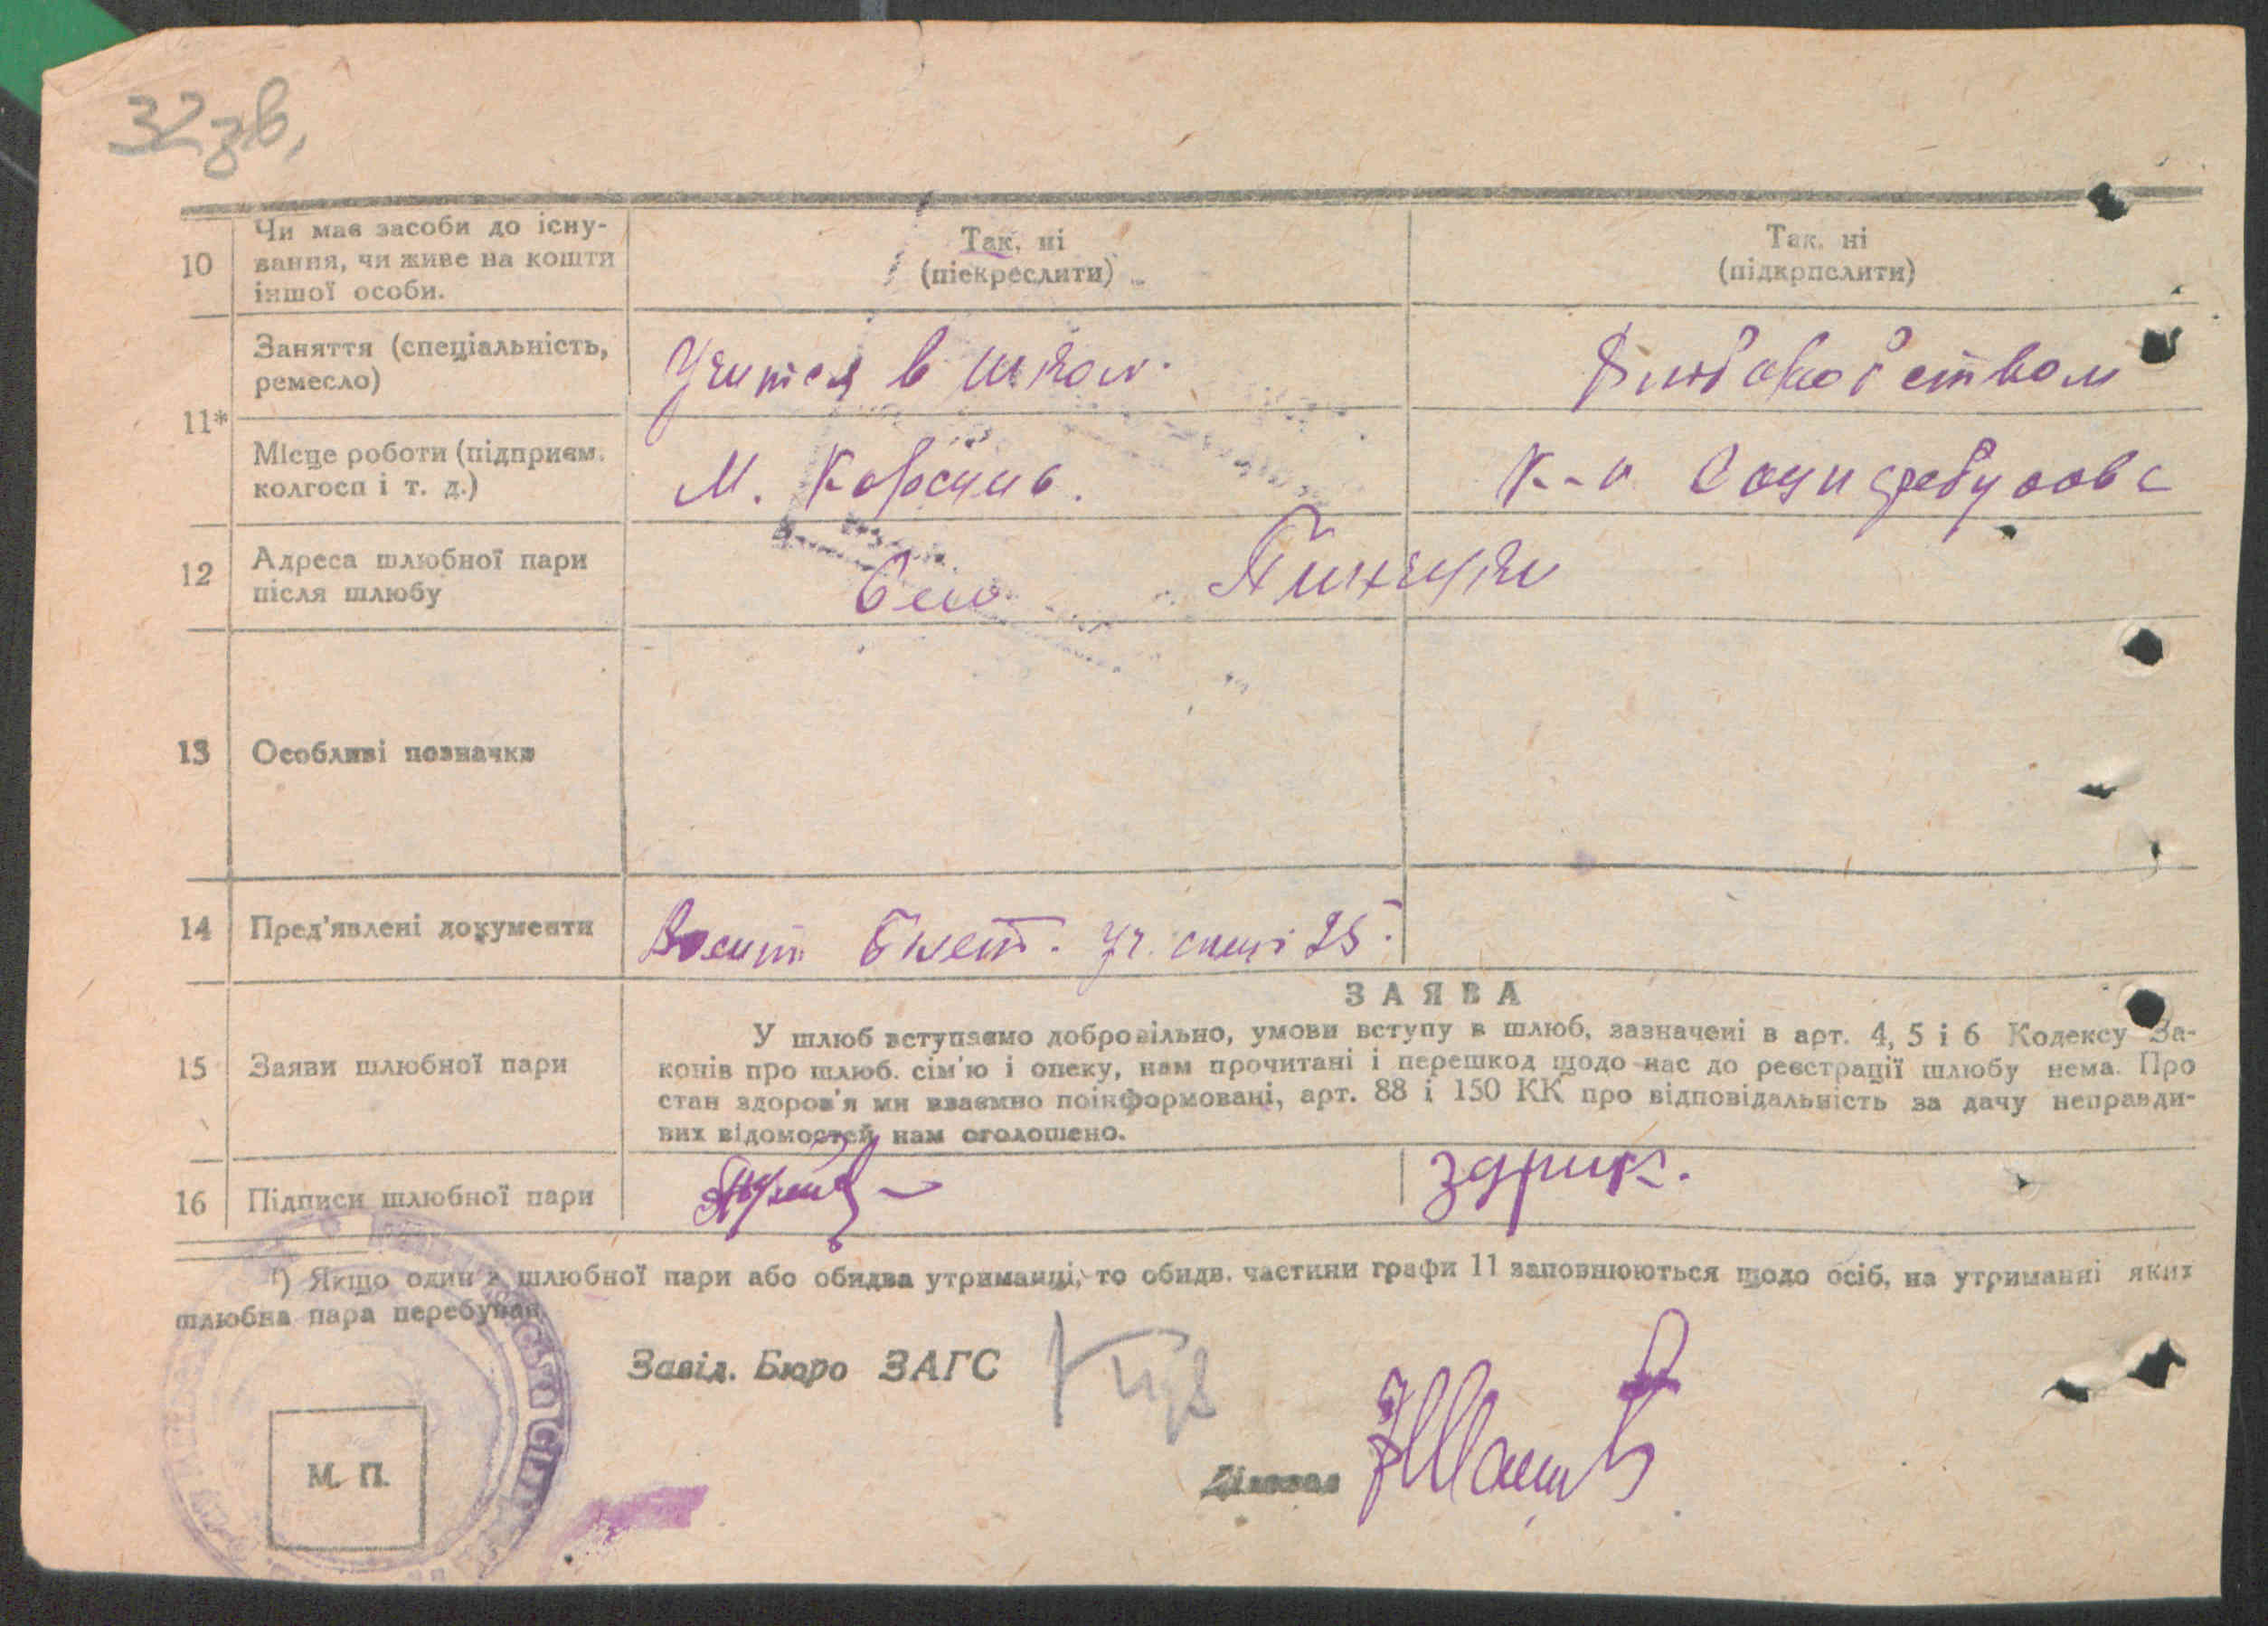 32 зв.
10 Чи має засоби до існу-
вання, чи живе на кошти
іншої особи.
Так, ні
(піекреслити)
Так, ні
(підкрпслити)
11*
Заняття (спеціальність,
ремесло)
Учится в школ.
Місце роботи (підприєм.
колгосп і т. д.)
М. Корсунь.
К-п
12 Адреса шлюбної пари
після шлюбу
Село
13 Особливі позначки
14 Пред'явлені документи
Воєнт Білет. уч. спец 25.
15 Заяви шлюбної пари
ЗАЯВА
У шлюб вступаємо добровільно, умови вступу в шлюб, зазначені в арт. 4, 5 і 6 Кодексу За-
конів про шлюб. сім'ю і опеку, нам прочитані і перешкод щодо нас до реєстрації шлюбу нема. Про
стан здоров'я ми взаємно поінформовані, арт. 88 і 150 КК про відповідальність за дачу неправди-
вих відомостей нам оголошено.
16 Підписи шлюбної пари
Здрик.
*) Якщо один з шлюбної пари або обидва утриманці, то обидв. частини графи 11 заповнюються щодо осіб, на утриманні яких
шлюбна пара перебуває.
Завід. Бюро ЗАГС
Діловод
М. П.